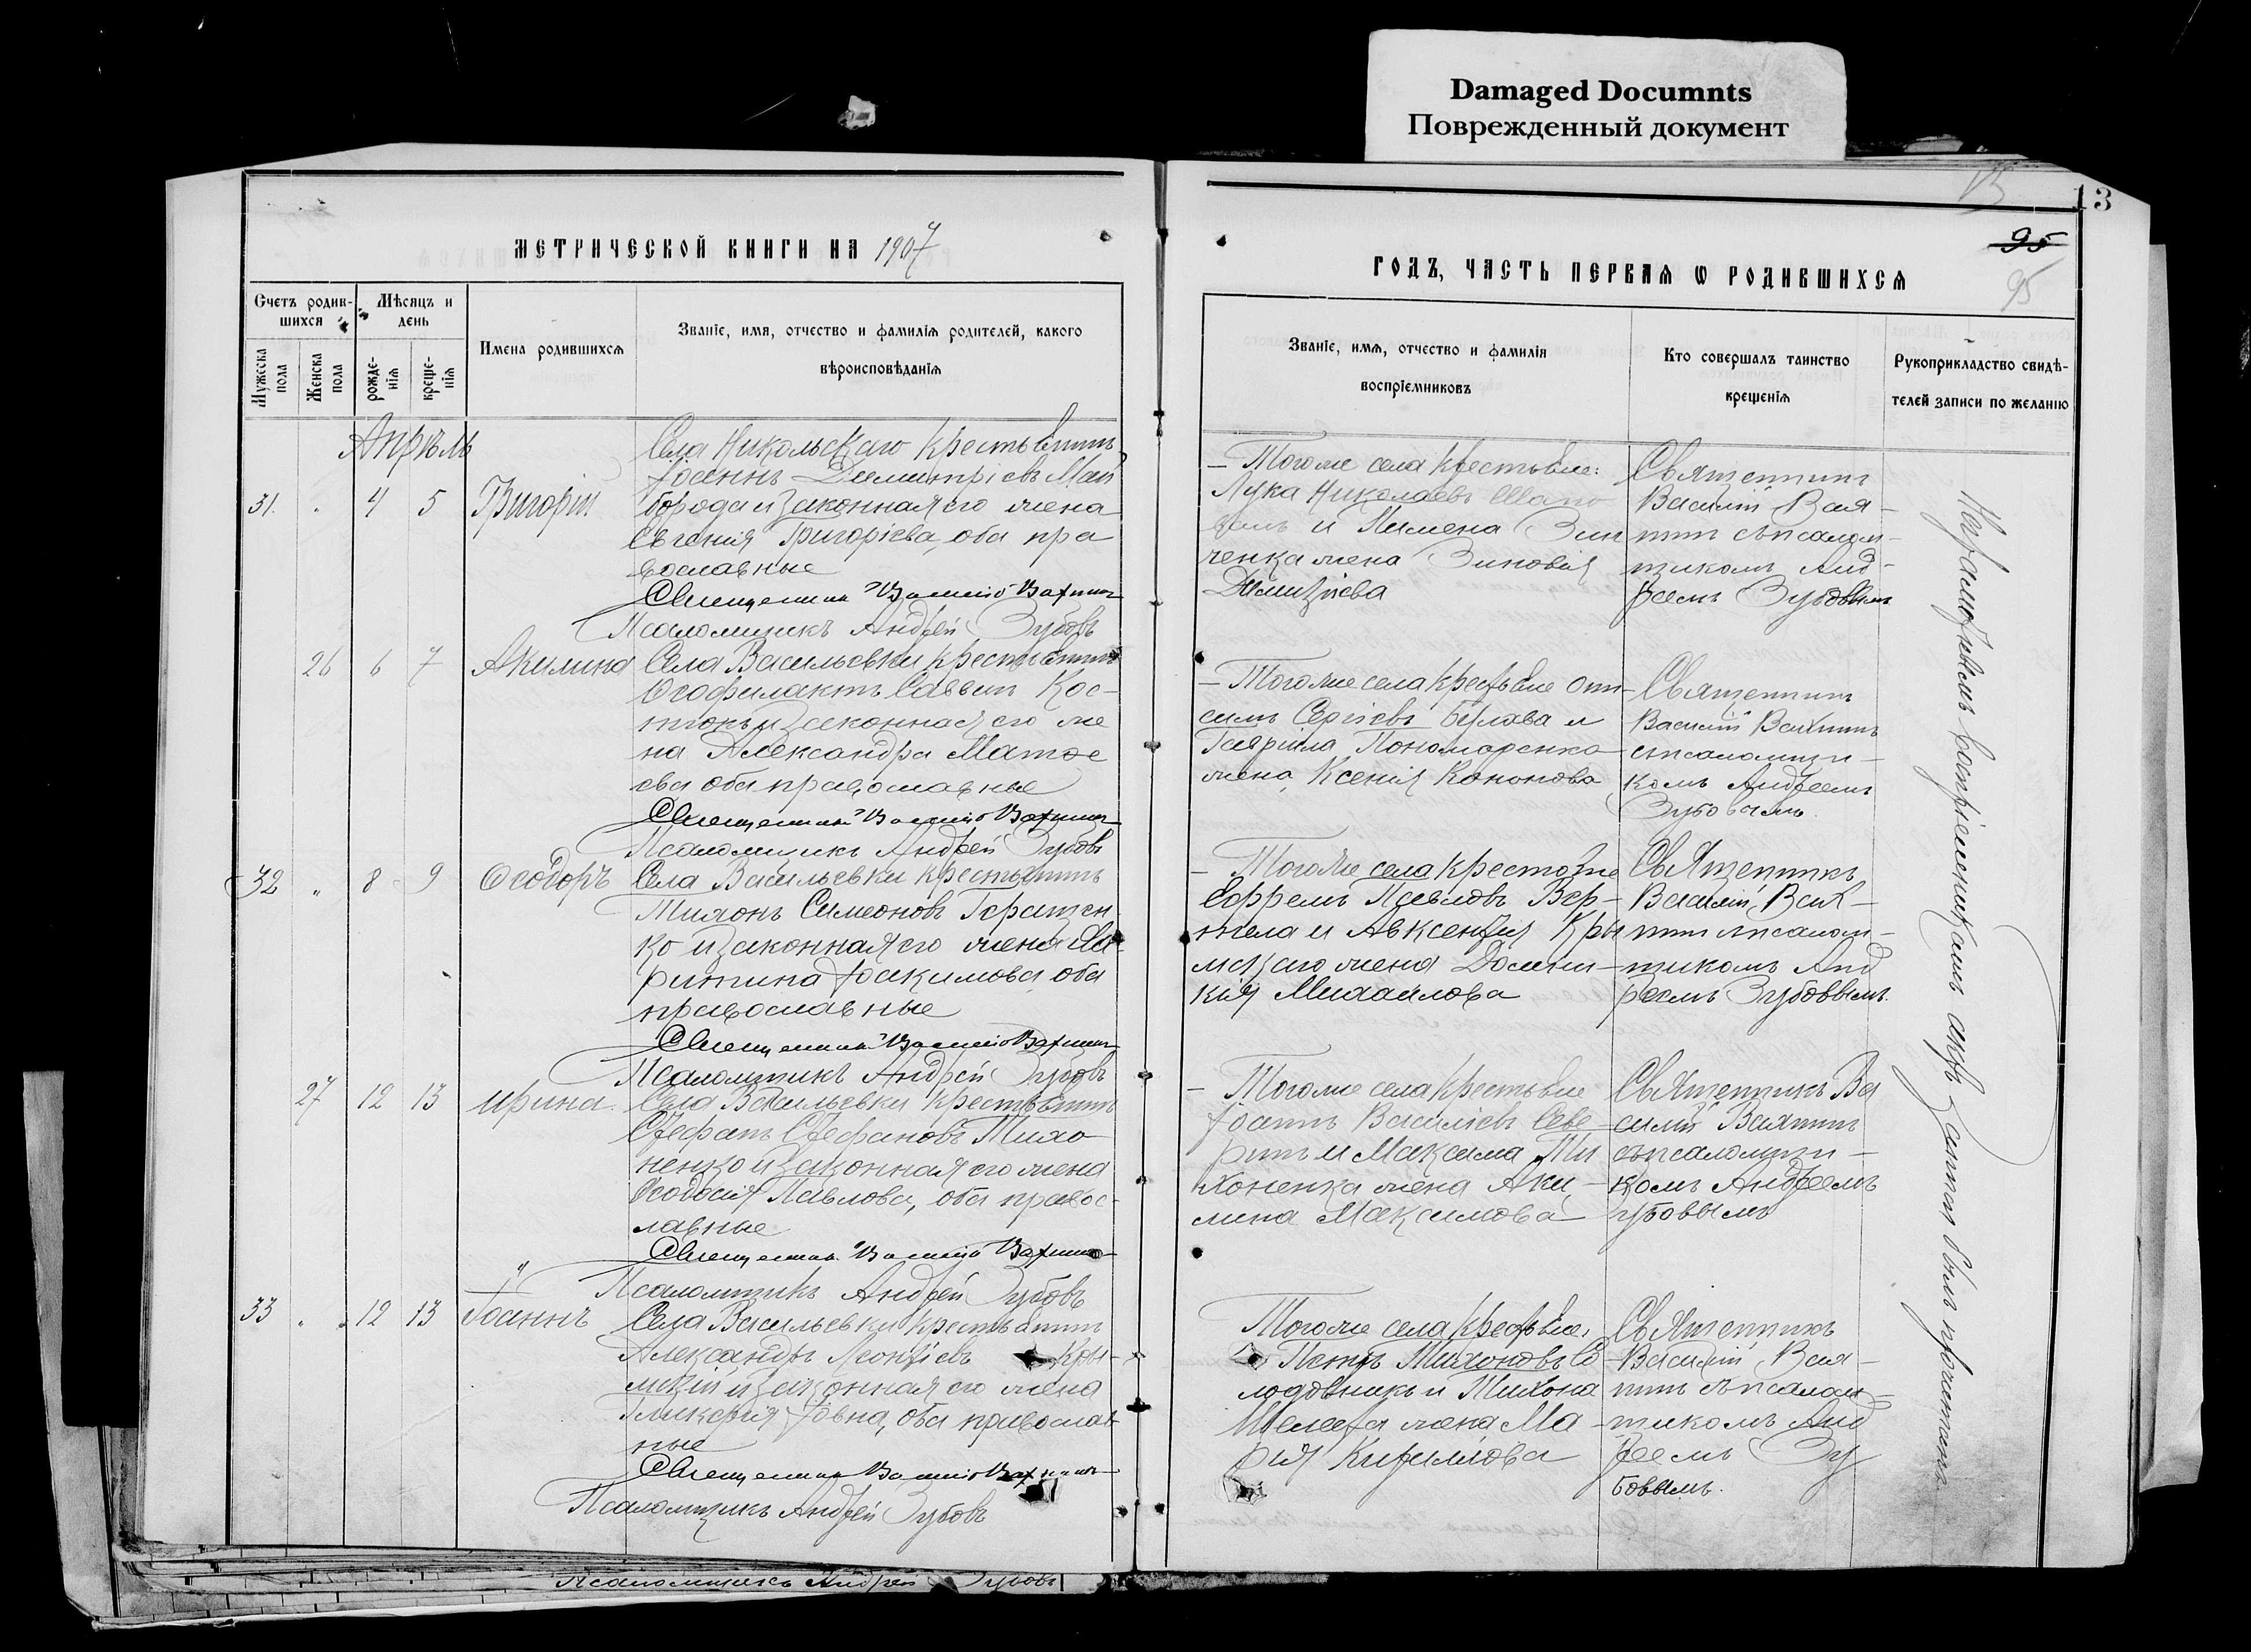 Damaged Documnts
Поврежденный документ
13
95
95
МЕТРИЧЕСКОЙ КНИГИ НА 1907
ГОДЪ, ЧАСТЬ ПЕРВАЯ Ѡ РОДИВШИХСЯ
Счетъ родив-
шихся
Мужеска пола
Женска пола
Мѣсяцъ и
день
рожде-
нія
креще-
нія
Имена родившихся
Званіе, имя, отчество и фамилія родителей, какого
вѣроисповѣданія
Званіе, имя, отчество и фамилія
воспріемниковъ
Кто совершалъ таинство
крещенія
Рукоприкладство свидѣ-
телей записи по желанію
Апрѣль
31. " 4 5 Григорій
Села Никольскаго крестьянинъ
Іоаннъ Димитріевъ Май
борода и законная его жена
Евгенія Григорієва, оба пра
вославные
Священникъ Василій Вахнинъ
Псаломщикъ Андрей Зубовъ
Тогоже села крестьяне:
Лука Николаевъ
и Пимена Зин
ченка жена Зиновія
Димитріева
Священникъ
Василій Вах-
нинъ съ псалом-
щикомъ Анд-
реемъ Зубовымъ
26 6 7 Акилина
Села Васильевки крестьянинъ
Ѳеофилактъ Саввинъ Кос-
тюкъ и законная его же
на Александра Матѳе
ева оба православные
Священникъ Василій Вахнинъ
Псаломщикъ Андрей Зубовъ
Тогоже села крестьяне Они-
симъ Сергіевъ и
Гавріила Пономаренко
жена Ксенія Кононова
Священникъ
Василій Вахнинъ
съ псаломщи-
комъ Андреемъ
Зубовымъ.
32 " 8 9 Ѳеодоръ
Села Васильевки крестьянинъ
Тихонъ Симеоновъ Геращен
ко и законная его жена Ма-
ритина Іоакимова оба
православные
Священникъ Василій Вахнинъ
Псаломщикъ Андрей Зубовъ
Тогоже села крестьяне
Ефремъ Павловъ Вер-
тела и Авксентія Кры
мскаго жена Домни-
кія Михайлова
Священникъ
Василій Вах-
нинъ съ псалом-
щикомъ Анд
реемъ Зубовымъ.
27 12 13 Ирина.
Села Васильевки крестьянинъ
Стефанъ Стефановъ Тихо
ненко и законная его жена
Ѳеодосія Павлова, оба правос-
лавные
Священникъ Василій Вахнинъ
Псаломщикъ Андрей Зубовъ
Тогоже села крестьяне
Іоаннъ Василіевъ Севе
ринъ и Максима Ти
хоненка жена Аки-
лина Максимова
Священникъ Ва
силій Вахнинъ
съ псаломщи-
комъ Андреемъ
Зубовымъ
33 " 12 13 Іоаннъ
Села Васильевки крестьянинъ
Александръ Леонтіевъ Кры-
мскій и законная его жена
Гликерія Іовна, оба православ
ные
Священникъ Василій Вахнинъ
Псаломщикъ Андрей Зубовъ
Тогоже села крестьяне:
Петръ Тихоновъ Со
лодовникъ и Тихона
жена Ма-
рія Кириллова
Священникъ
Василій Вах-
нинъ съ псалом-
щикомъ Анд
реемъ Зу
бовымъ.
Неграмотнымъ воспріемникамъ актъ записи былъ прочитанъ
Псаломщикъ Андрей Зубовъ